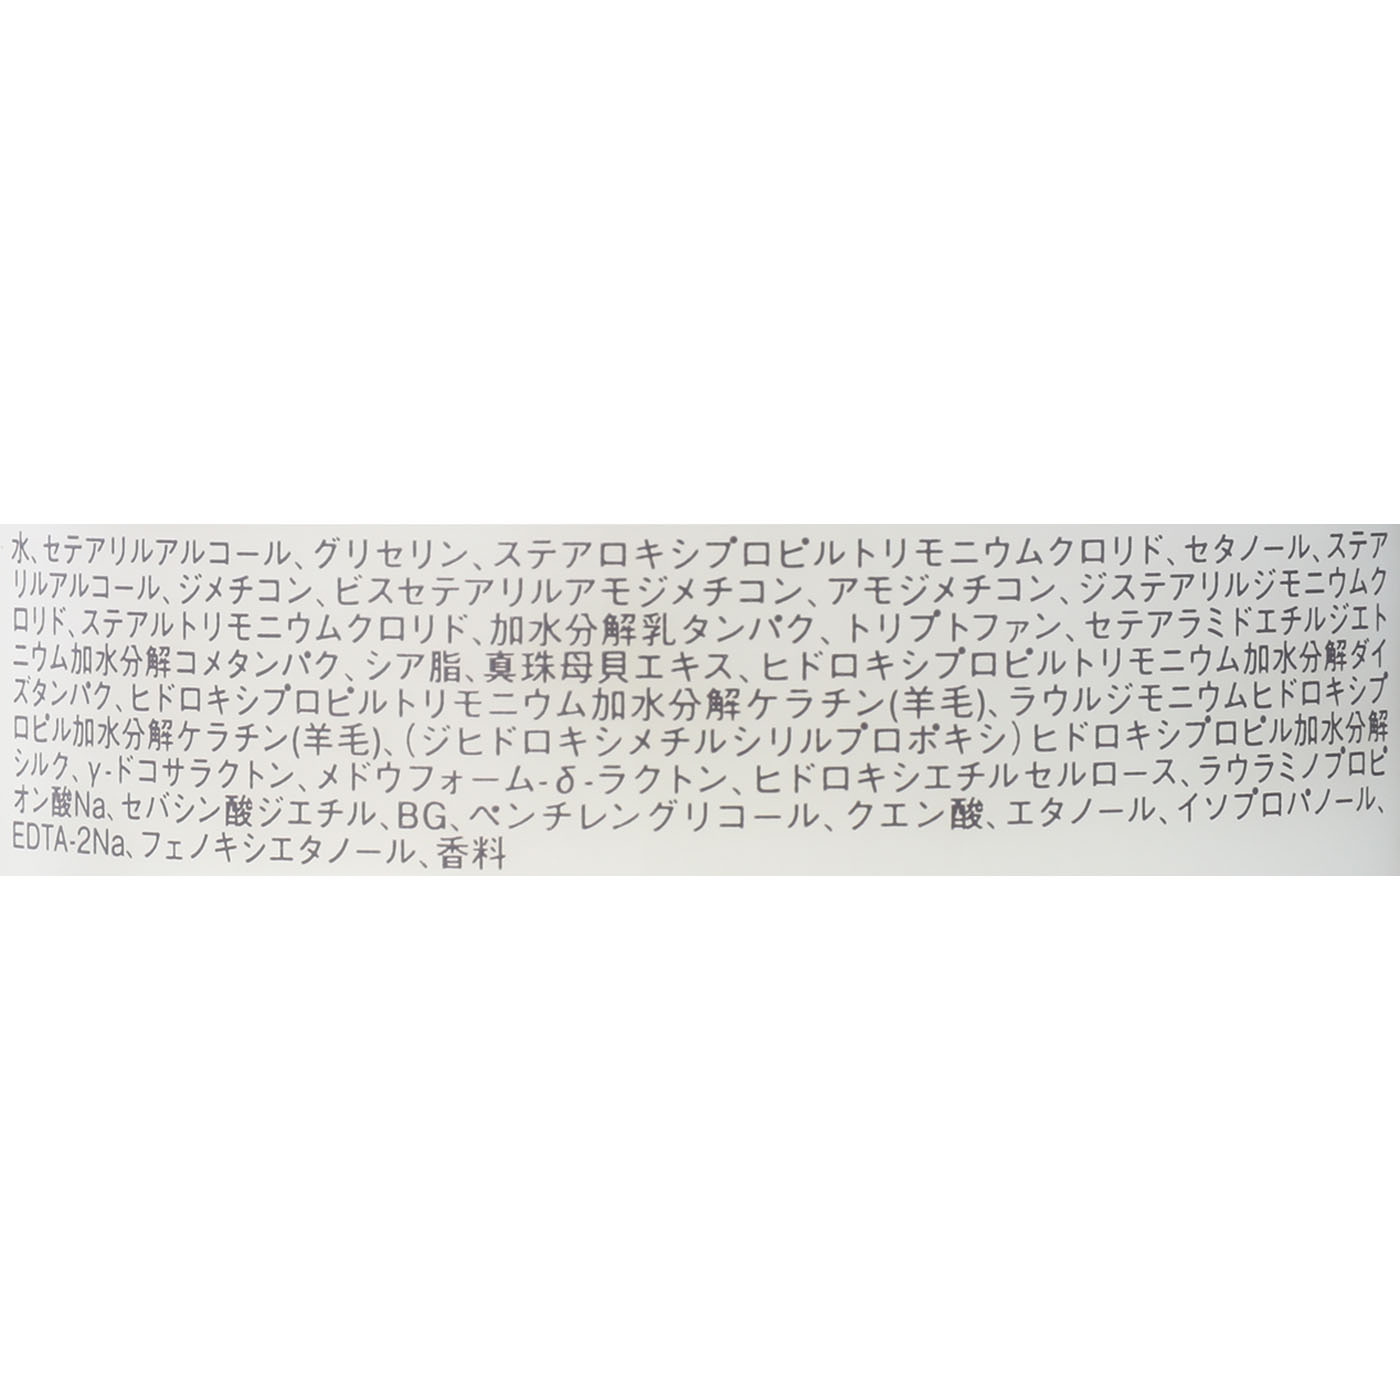 水、セテアリルアルコール、グリセリン、ステアロキシプロピルトリモニウムクロリド、セタノール、ステア
リルアルコール、ジメチコン、ビスセテアリルアモジメチコン、アモジメチコン、ジステアリルジモニウムク
ロリド、ステアルトリモニウムクロリド、加水分解乳タンパク、トリプトファン、セテアラミドエチルジエト
ニウム加水分解コメタンパク、シア脂、真珠母貝エキス、ヒドロキシプロピルトリモニウム加水分解ダイ
ズタンパク、ヒドロキシプロピルトリモニウム加水分解ケラチン(羊毛)、ラウルジモニウムヒドロキシプ
ロピル加水分解ケラチン(羊毛)、(ジヒドロキシメチルシリルプロポキシ)ヒドロキシプロピル加水分解
シルク、γ-ドコサラクトン、メドウフォーム-δ-ラクトン、ヒドロキシエチルセルロース、ラウラミノプロピ
オン酸Na、セバシン酸ジエチル、BG、ペンチレングリコール、クエン酸、エタノール、イソプロパノール、
EDTA-2Na、フェノキシエタノール、香料